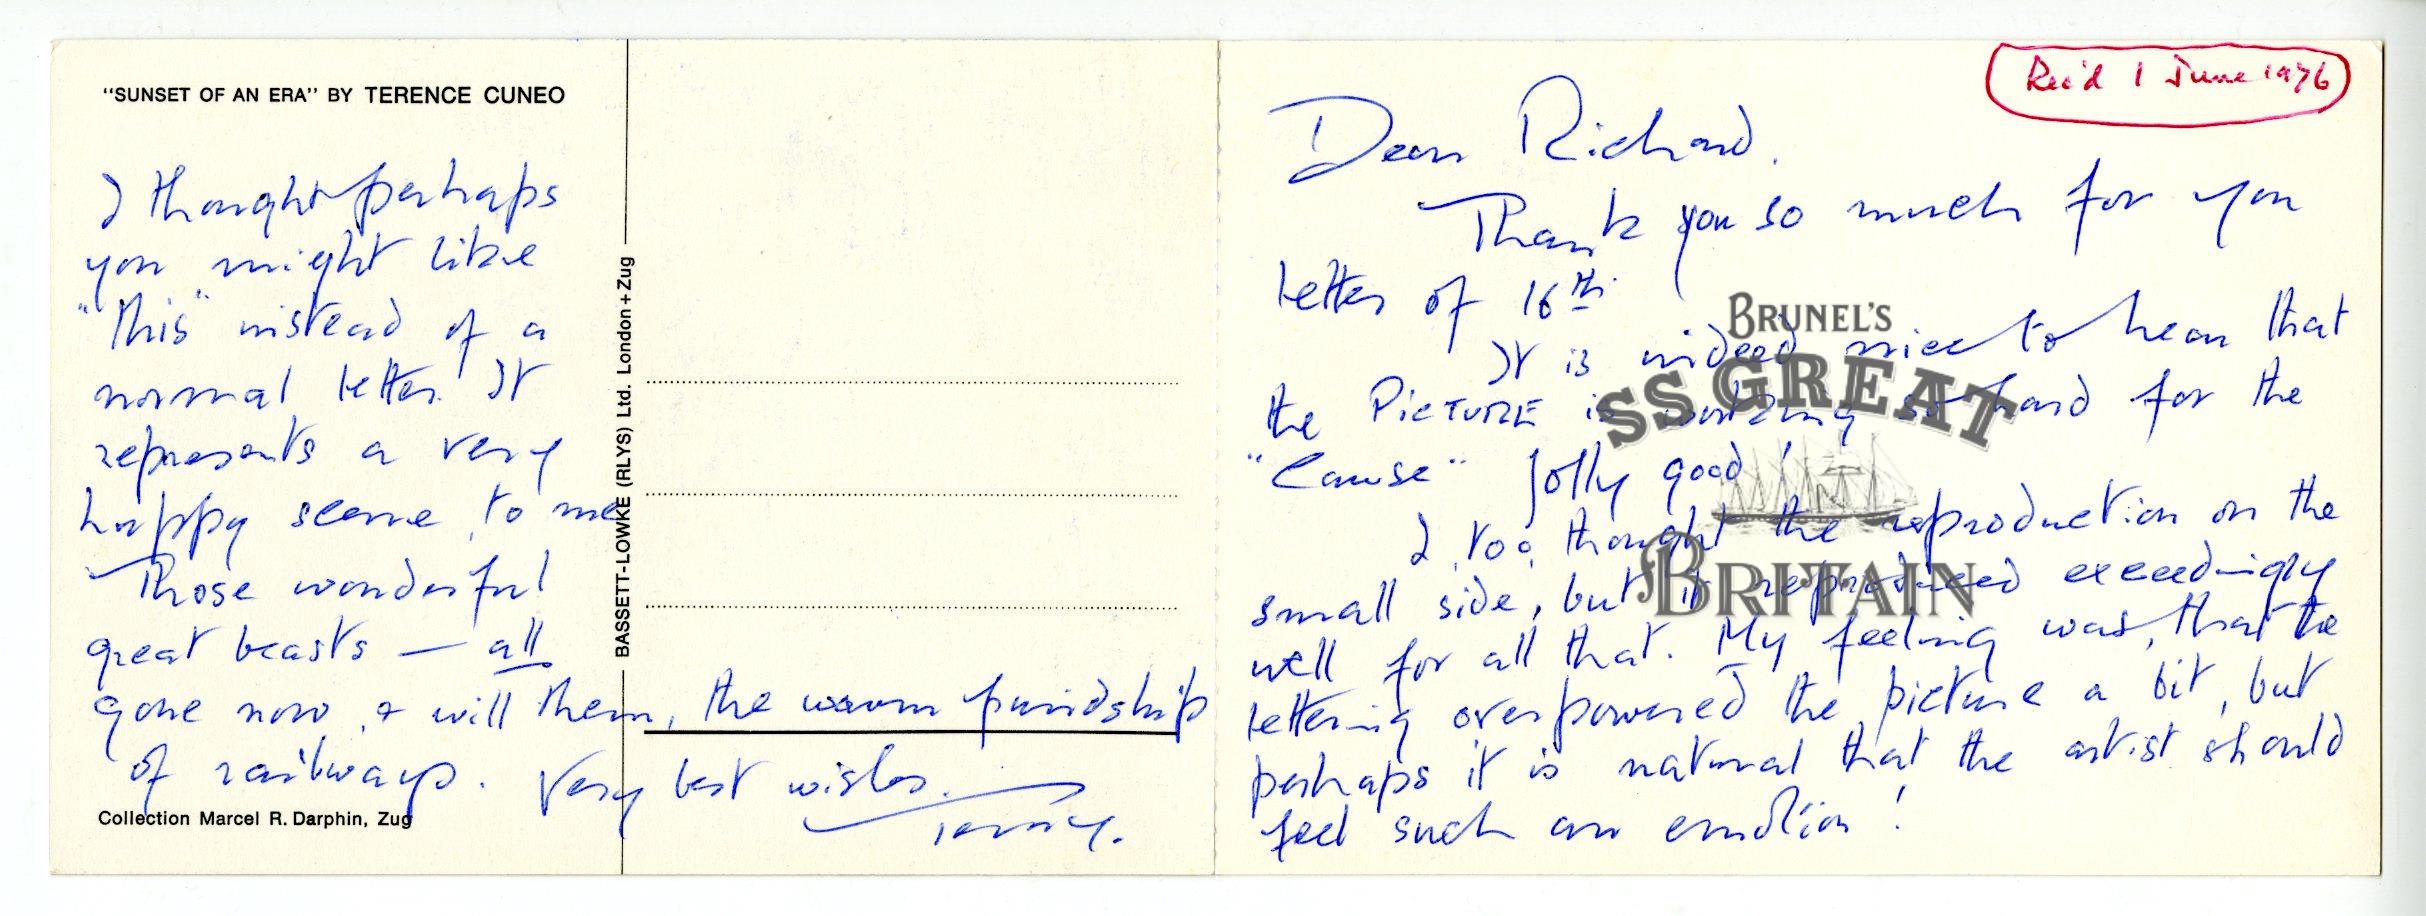 Rec'd 1 June 1976
Dear Richard.
Thank you so much for you
letter of 16th.
It is indeed nice to hear that
the PICTURE is working so hard for the
"Cause" Jolly good!
I, too, thought the reproduction on the
small side, but it reproduced exceedingly
well for all that. My feeling was, that the
lettering overpowered the picture a bit, but
perhaps it is natural that the artist should
feel such an emotion!
BRUNEL'S
SS GREAT
BRITAIN
"SUNSET OF AN ERA" BY TERENCE CUNEO
I thought perhaps
you might like
"this" instead of a
normal letter. It
represents a very
happy scene, to me
Those wonderful
great beasts — all
gone now, & will them, the warm friendship
of railways. Very best wishes.
Terence.
Collection Marcel R. Darphin, Zug
BASSETT-LOWKE (RLYS) Ltd. London + Zug